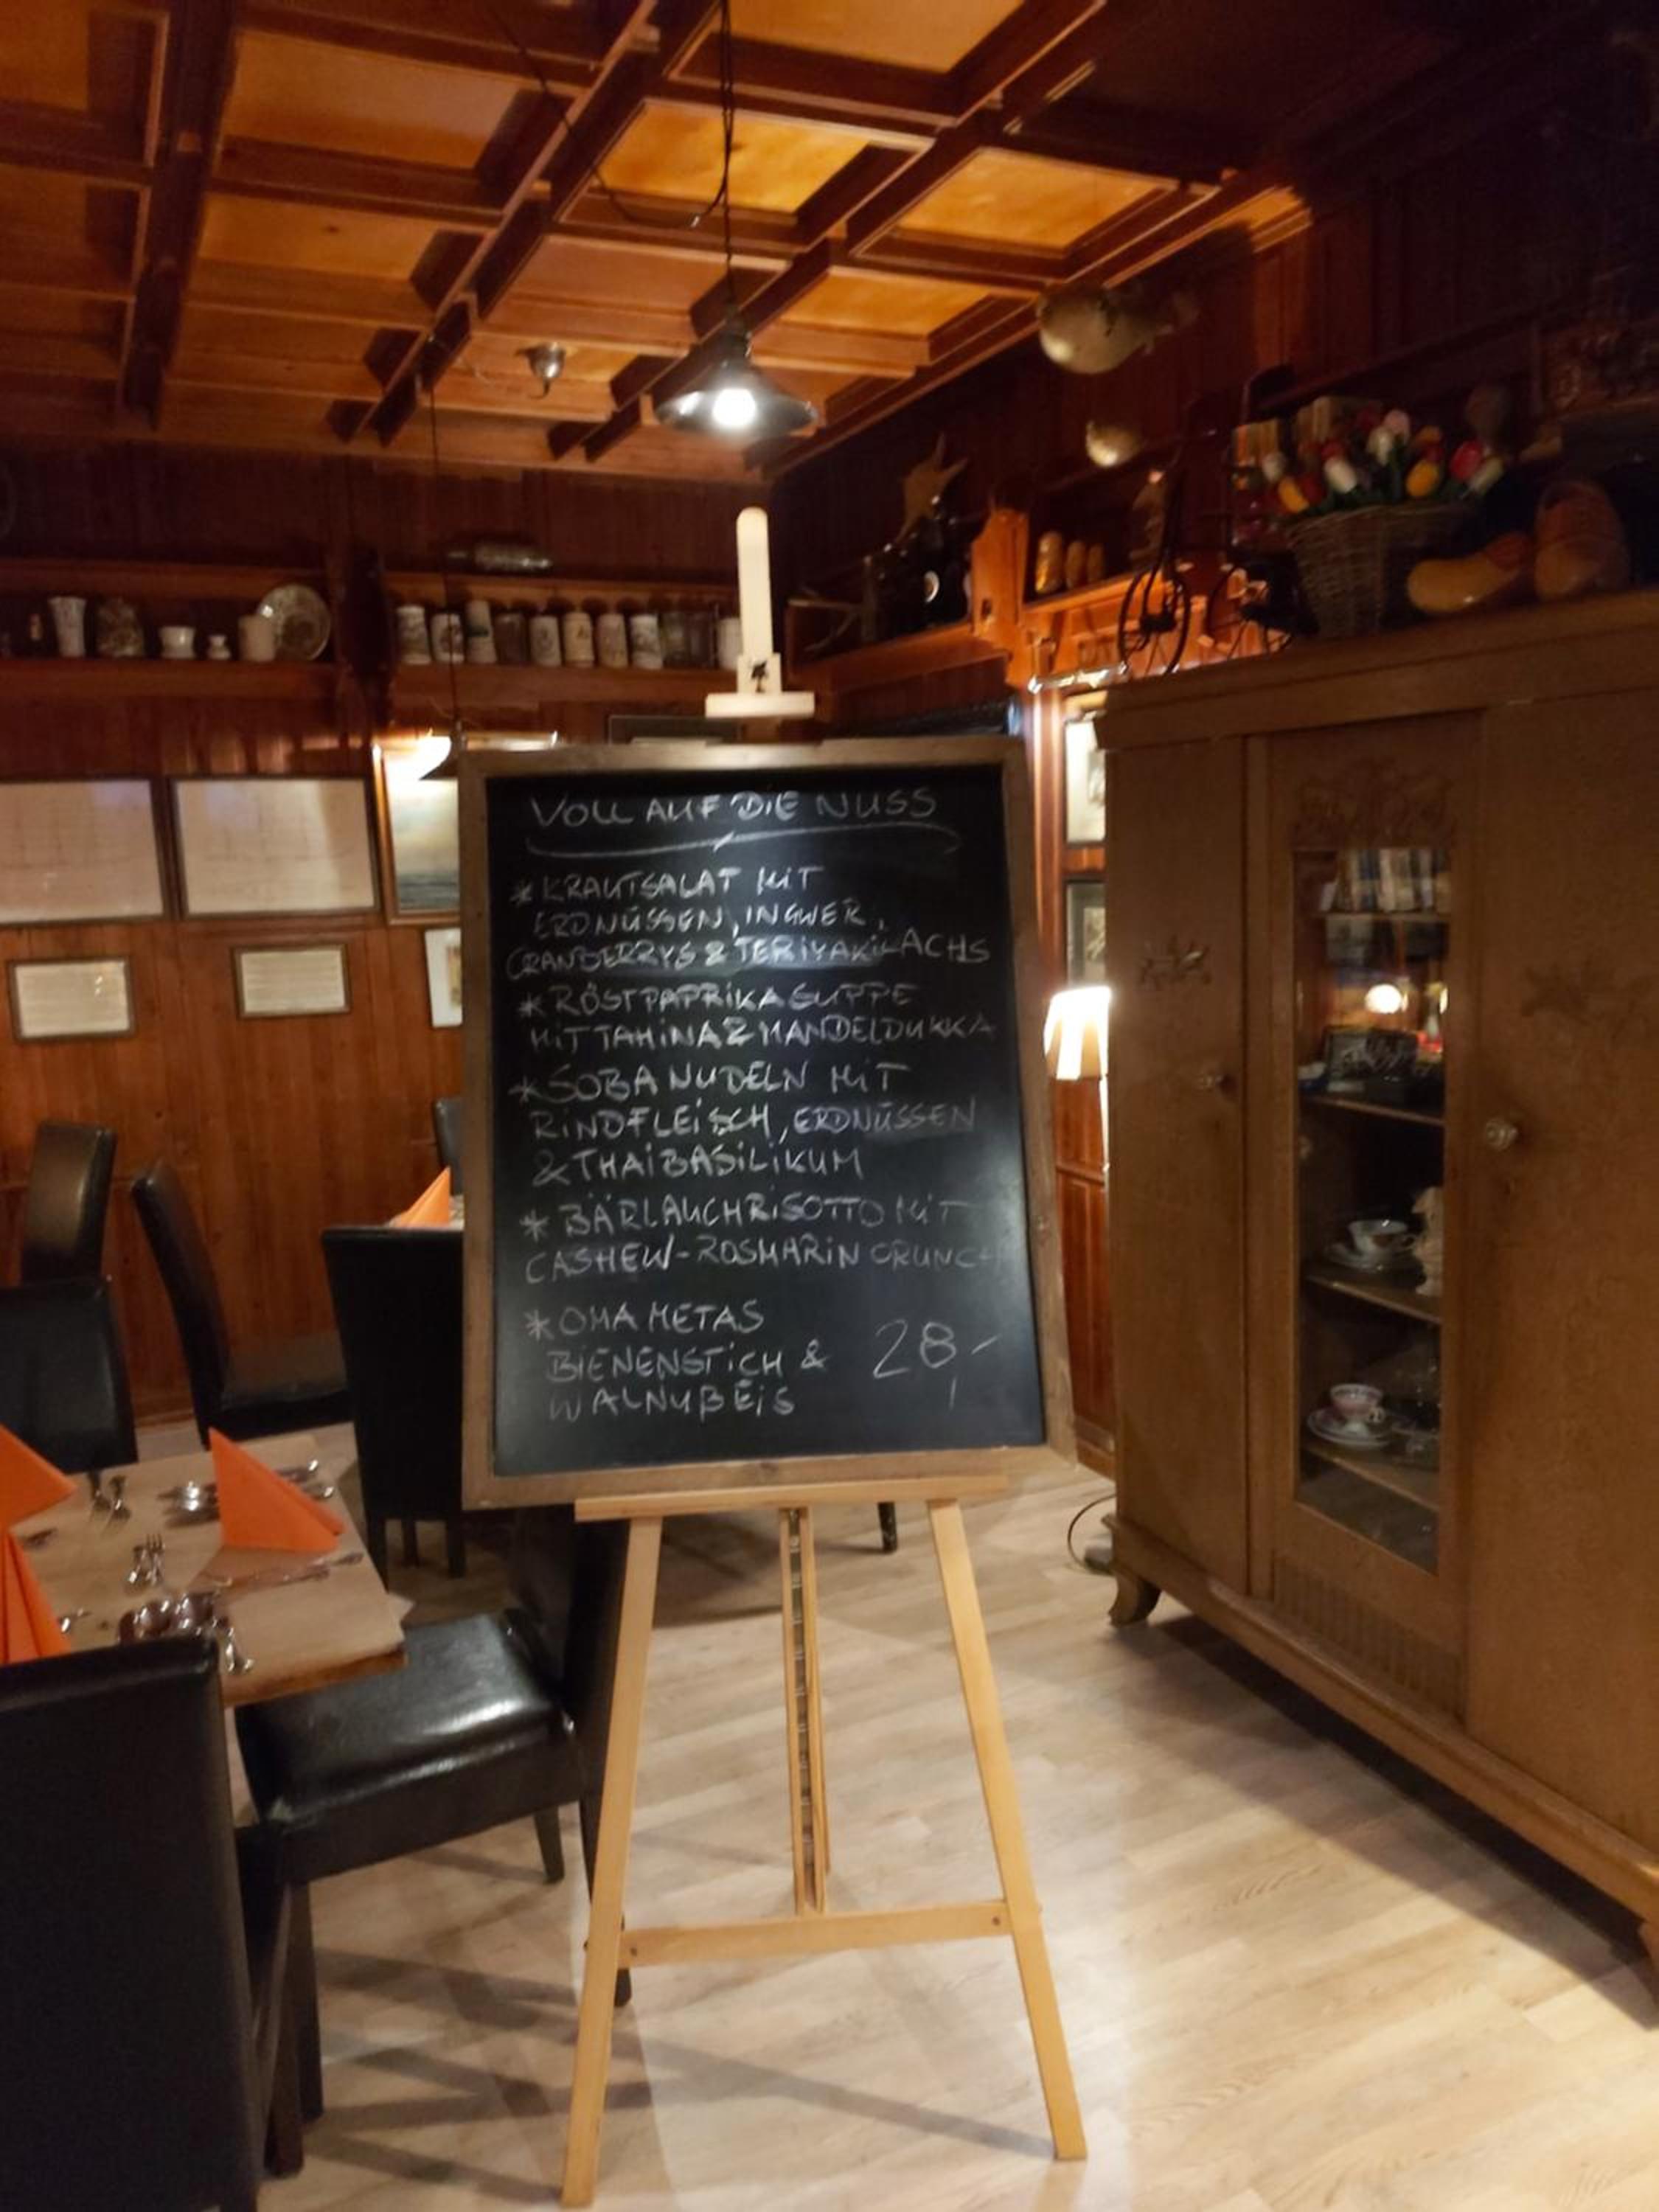 VOLL AUF DIE NUSS
* KRAUTSALAT MIT
ERDNÜSSEN, INGWER,
CRANBERRYS & TERIYAKILACHS
* RÖSTPAPRIKASUPPE
MIT TAHINA & MANDELDUKKA
* SOBA NUDELN MIT
RINDFLEISCH, ERDNÜSSEN
& THAIBASILIKUM
* BÄRLAUCHRISOTTO MIT
CASHEW-ROSMARIN CRUNCH
* OMA METAS
BIENENSTICH & 28,-
WALNUßEIS